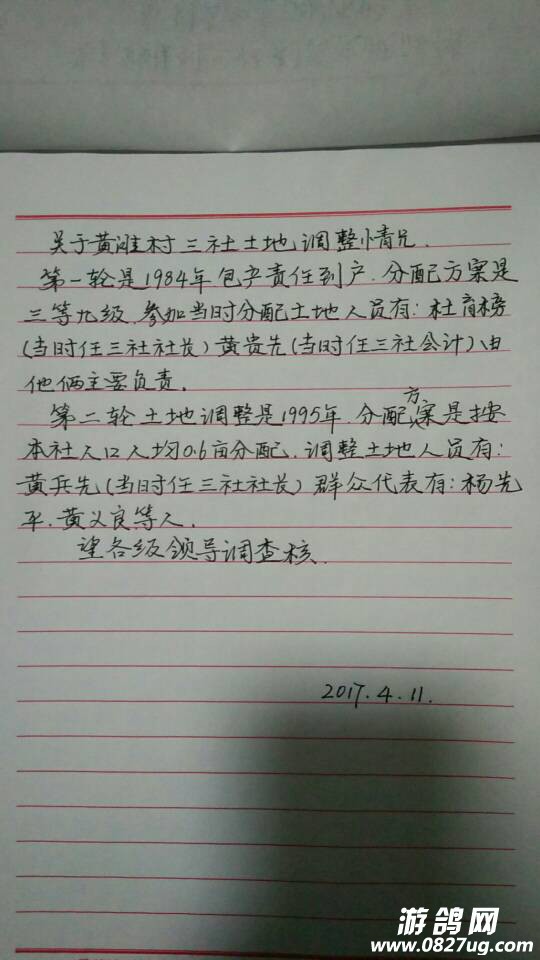 关于黄滩村三社土地调整情况.
第一轮是1984年包产责任到户.分配方案是
三等九级.参加当时分配土地人员有:杜育榜
(当时任三社社长)黄贵先(当时任三社会计)由
他俩主要负责.
第二轮土地调整是1995年.分配方案是按
本社人口人均0.6亩分配.调整土地人员有:
黄兵先(当时任三社社长)群众代表有:杨先
平.黄义良等人.
望各级领导调查核.
2017.4.11.
游鸽网
www.0827ug.com